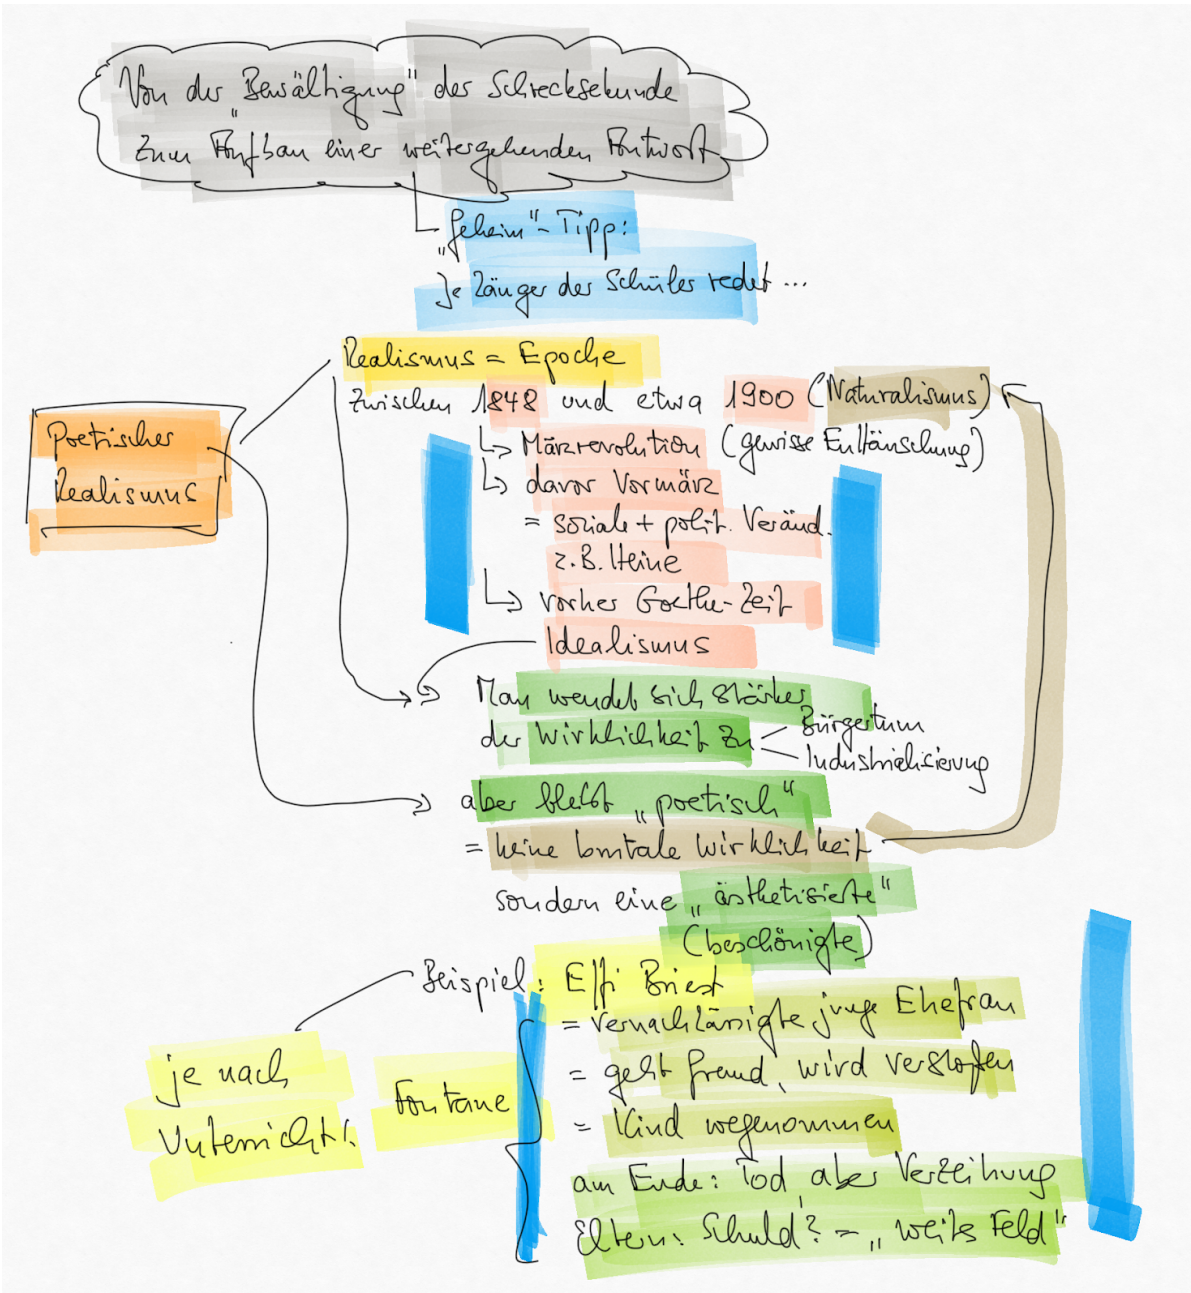 Von der „Bewältigung" der Schrecksekunde
zum Aufbau einer weitergehenden Antwort
„Geheim"-Tipp:
Je länger der Schüler redet ...
Realismus = Epoche
zwischen 1848 und etwa 1900 (Naturalismus)
Poetischer
Realismus
Märzrevolution (gewisse Enttäuschung)
davor Vormärz
= soziale + polit. Veränd.
z.B. Heine
vorher Goethe-Zeit
Idealismus
Man wendet sich stärker
der Wirklichkeit zu
Bürgertum
Industrialisierung
aber bleibt „poetisch"
= keine brutale Wirklichkeit
sondern eine „ästhetisierte"
(beschönigte)
Beispiel: Effi Briest
= vernachlässigte junge Ehefrau
= geht fremd, wird verstoßen
= Kind wegenommen
je nach
Unterricht!
Fontane
am Ende: Tod, aber Verzeihung
Eltern: Schuld? = „weites Feld"